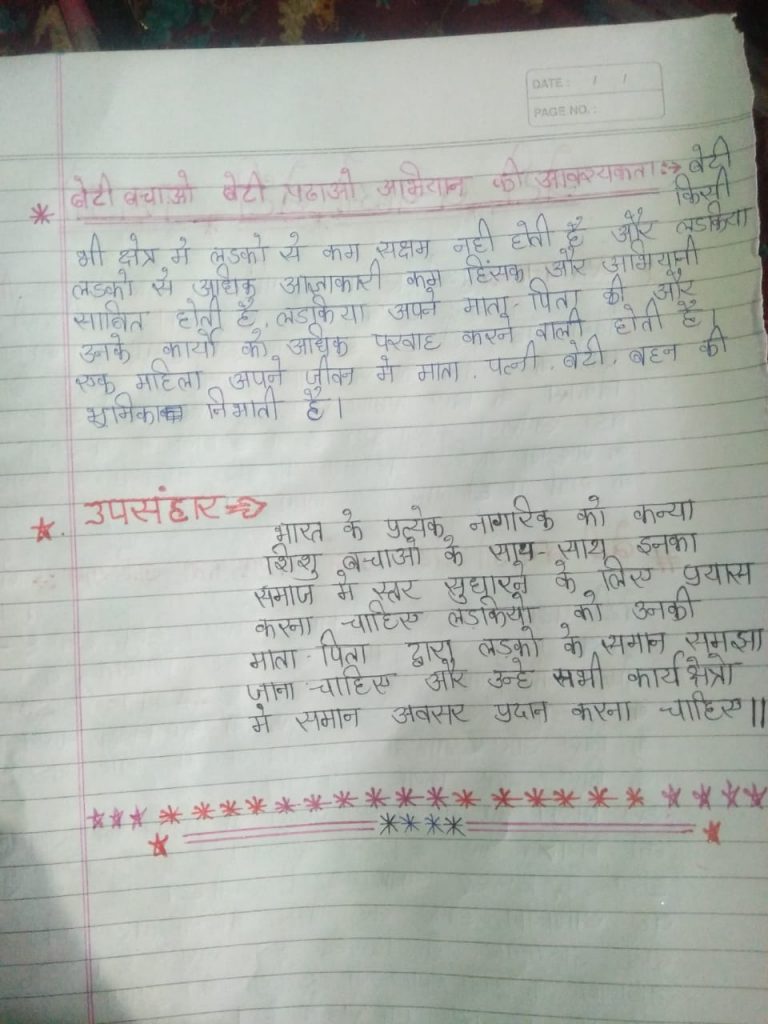 DATE : / /
PAGE NO. :
* बेटी बचाओ बेटी पढाओ अभियान की आवश्यकता :→ बेटी
किसी
भी क्षेत्र मे लडको से कम सक्षम नही होती है और लडकिया
लडको से अधिक आज्ञाकारी कम हिंसक और अभिमानी
साबित होती है. लडकिया अपने माता-पिता की और
उनके कार्यो की अधिक परवाह करने वाली होती है।
एक महिला अपने जीवन मे माता. पत्नी. बेटी. बहन की
भूमिका निभाती है।
★. उपसंहार ⇒
भारत के प्रत्येक नागरिक को कन्या
शिशु बचाओ के साथ-साथ इनका
समाज मे स्तर सुधारने के लिए प्रयास
करना चाहिए लडकियो को उनकी
माता-पिता द्वारा लडको के समान समझा
जाना चाहिए और उन्हे सभी कार्य क्षेत्रो
मे समान अवसर प्रदान करना चाहिए॥